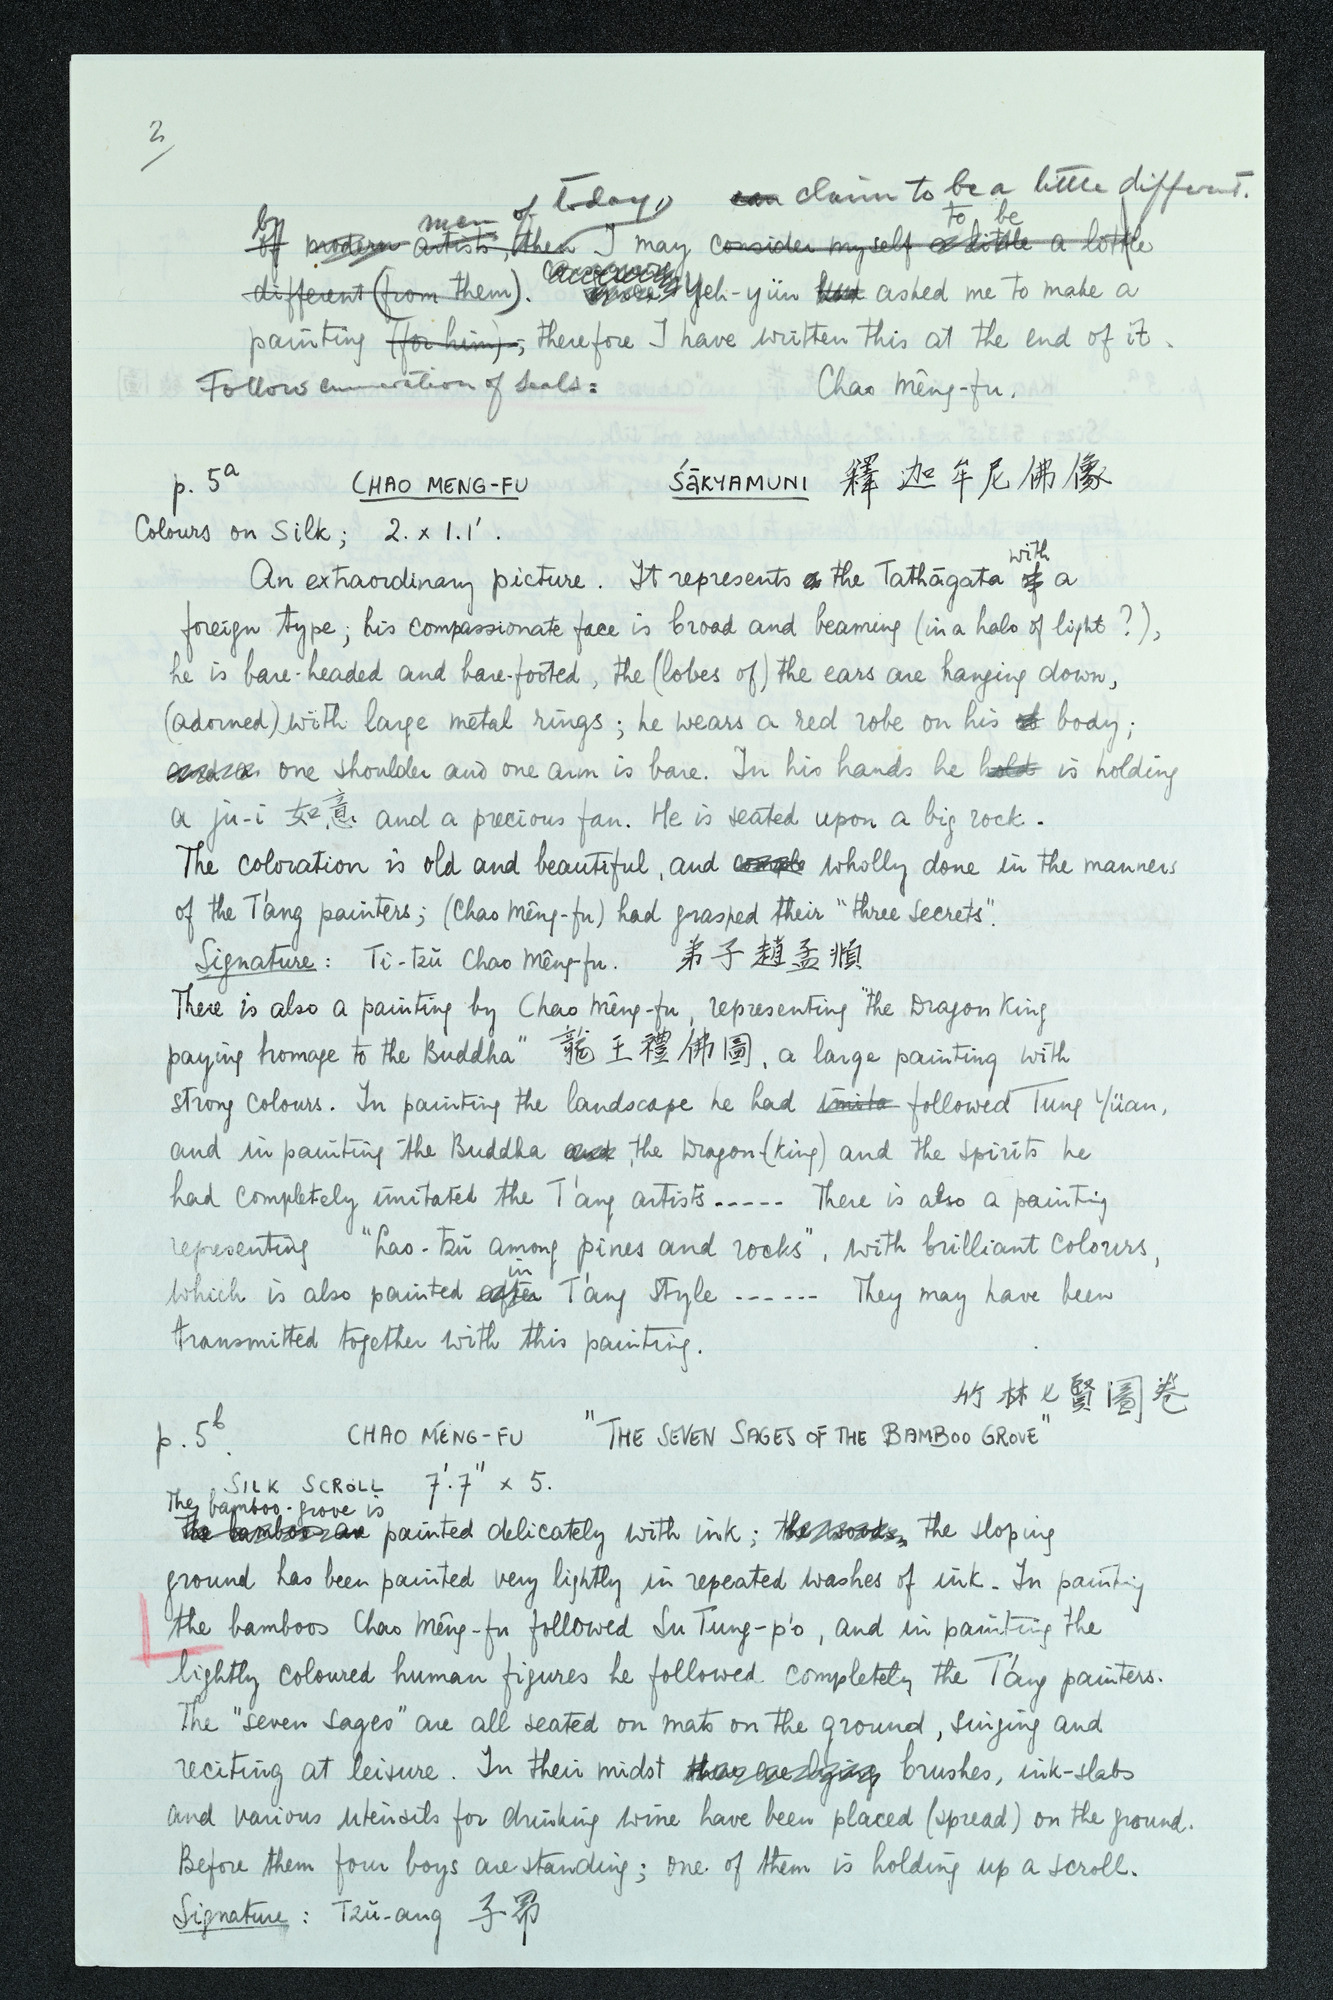 3/
of today, can claim to be a little different.
by men to be
of modern artists, then I may consider myself a little a little
different (from them). Yeh-yün had asked me to make a
painting (for him); therefore I have written this at the end of it.
Follow enumeration of seals: Chao Mêng-fu.
p. 5a CHAO MENG-FU ŚĀKYAMUNI 釋迦牟尼佛像
Colours on silk; 2. x 1.1'.
with
An extraordinary picture. It represents a the Tathāgata of a
foreign type; his compassionate face is broad and beaming (in a halo of light ?),
he is bare-headed and bare-footed, the (lobes of) the ears are hanging down,
(adorned) with large metal rings; he wears a red robe on his body;
one shoulder and one arm is bare. In his hands he hold is holding
a ju-i 如意 and a precious fan. He is seated upon a big rock.
The coloration is old and beautiful, and comple wholly done in the manners
of the T'ang painters; (Chao Mêng-fu) had grasped their "three secrets".
Signature: Ti-tzŭ Chao Mêng-fu. 弟子趙孟頫
There is also a painting by Chao Mêng-fu, representing "the Dragon King
paying homage to the Buddha" 龍王禮佛圖, a large painting with
strong colours. In painting the landscape he had imita followed Tung Yüan,
and in painting the Buddha and, the Dragon-(king) and the spirits he
had completely imitated the T'ang artists ----- There is also a painting
representing "Lao-tzŭ among pines and rocks", with brilliant colours,
in
which is also painted after T'ang style ------ They may have been
transmitted together with this painting.
竹林七賢圖卷
p. 5b. CHAO MÊNG-FU "THE SEVEN SAGES OF THE BAMBOO GROVE"
SILK SCROLL 7'.7" x 5.
The bamboo-grove is
The bamboos are painted delicately with ink; the the sloping
ground has been painted very lightly in repeated washes of ink. In painting
the bamboos Chao Mêng-fu followed Su Tung-p'o, and in painting the
lightly coloured human figures he followed completely the T'ang painters.
The "seven sages" are all seated on mats on the ground, singing and
reciting at leisure. In their midst there are lying brushes, ink-slabs
and various utensils for drinking wine have been placed (spread) on the ground.
Before them four boys are standing; one of them is holding up a scroll.
Signature: Tzŭ-ang 子昂